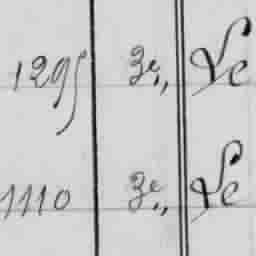 1295 3e,, Le
1110 3e,, Le